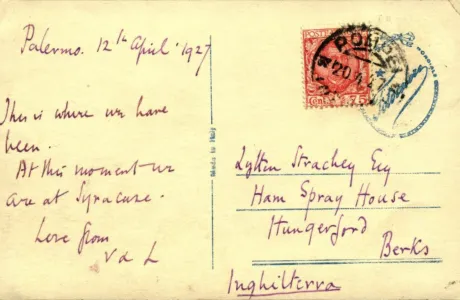 Palermo. 12th April. 1927
This is where we have
been.
At this moment we
are at Syracuse.
Love from
V & L
Made in Italy
POSTE
Cent. 75
POMPEI
20.4
Lytton Strachey Esq
Ham Spray House
Hungerford
Berks
Inghilterra